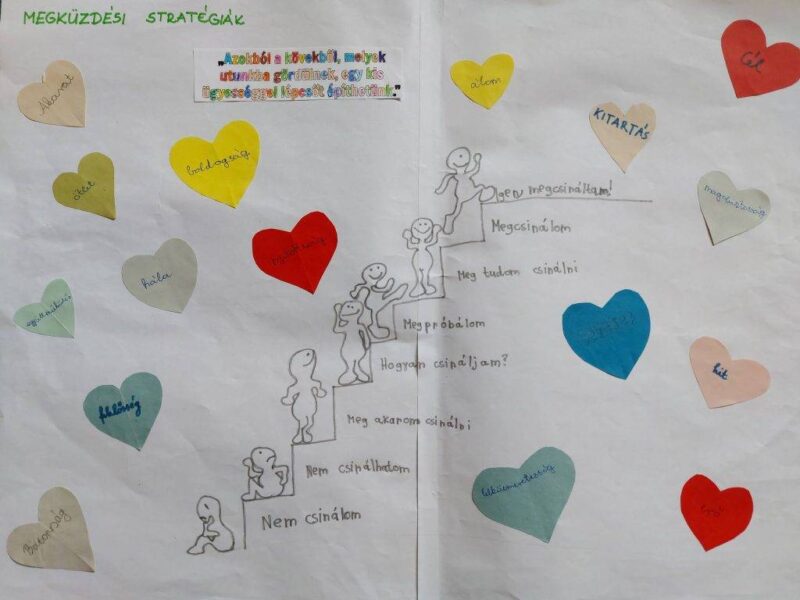 MEGKÜZDÉSI STRATÉGIÁK
„Azokból a kövekből, melyek
utunkba gördülnek, egy kis
ügyességgel lépcsőt építhetünk."
Akarat
ötlet
boldogság
hála
felelősség
Bátorság
álom
KITARTÁS
Cél
hit
Igen, megcsináltam!
Megcsinálom
Meg tudom csinálni
Megpróbálom
Hogyan csináljam?
Meg akarom csinálni
Nem csinálhatom
Nem csinálom